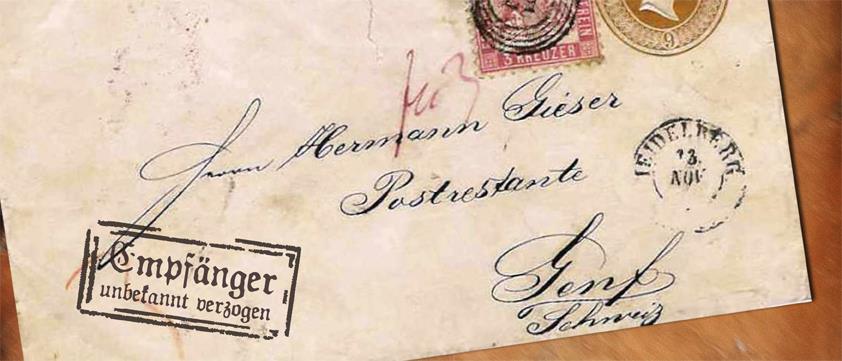 3 KREUZER
REIN
9
Herrn Hermann Gieser
Postrestante
HEIDELBERG
13.
NOV
Genf
Schweiz
Empfänger
unbekannt verzogen